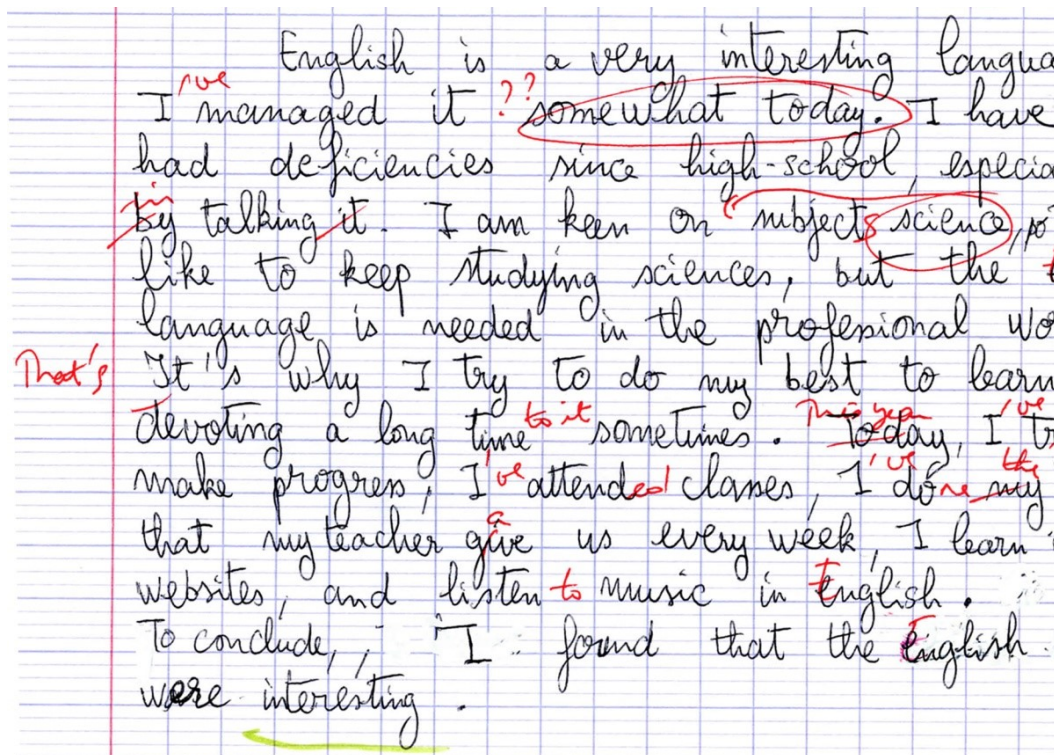 English is a very interesting langua
've
I managed it ?? somewhat today. I have
had deficiencies since high-school, especia
in
by talking it. I am keen on subjects science, po
like to keep studying sciences, but the
language is needed in the profesional wo
That's It's why I try to do my best to learn
to it This year 've
devoting a long time sometimes. Today, I tr
've 've the
make progress, I attended classes, I done my
a
that my teacher give us every week, I learn
websites, and listen to music in English.
To conclude, I found that the English
were interesting.